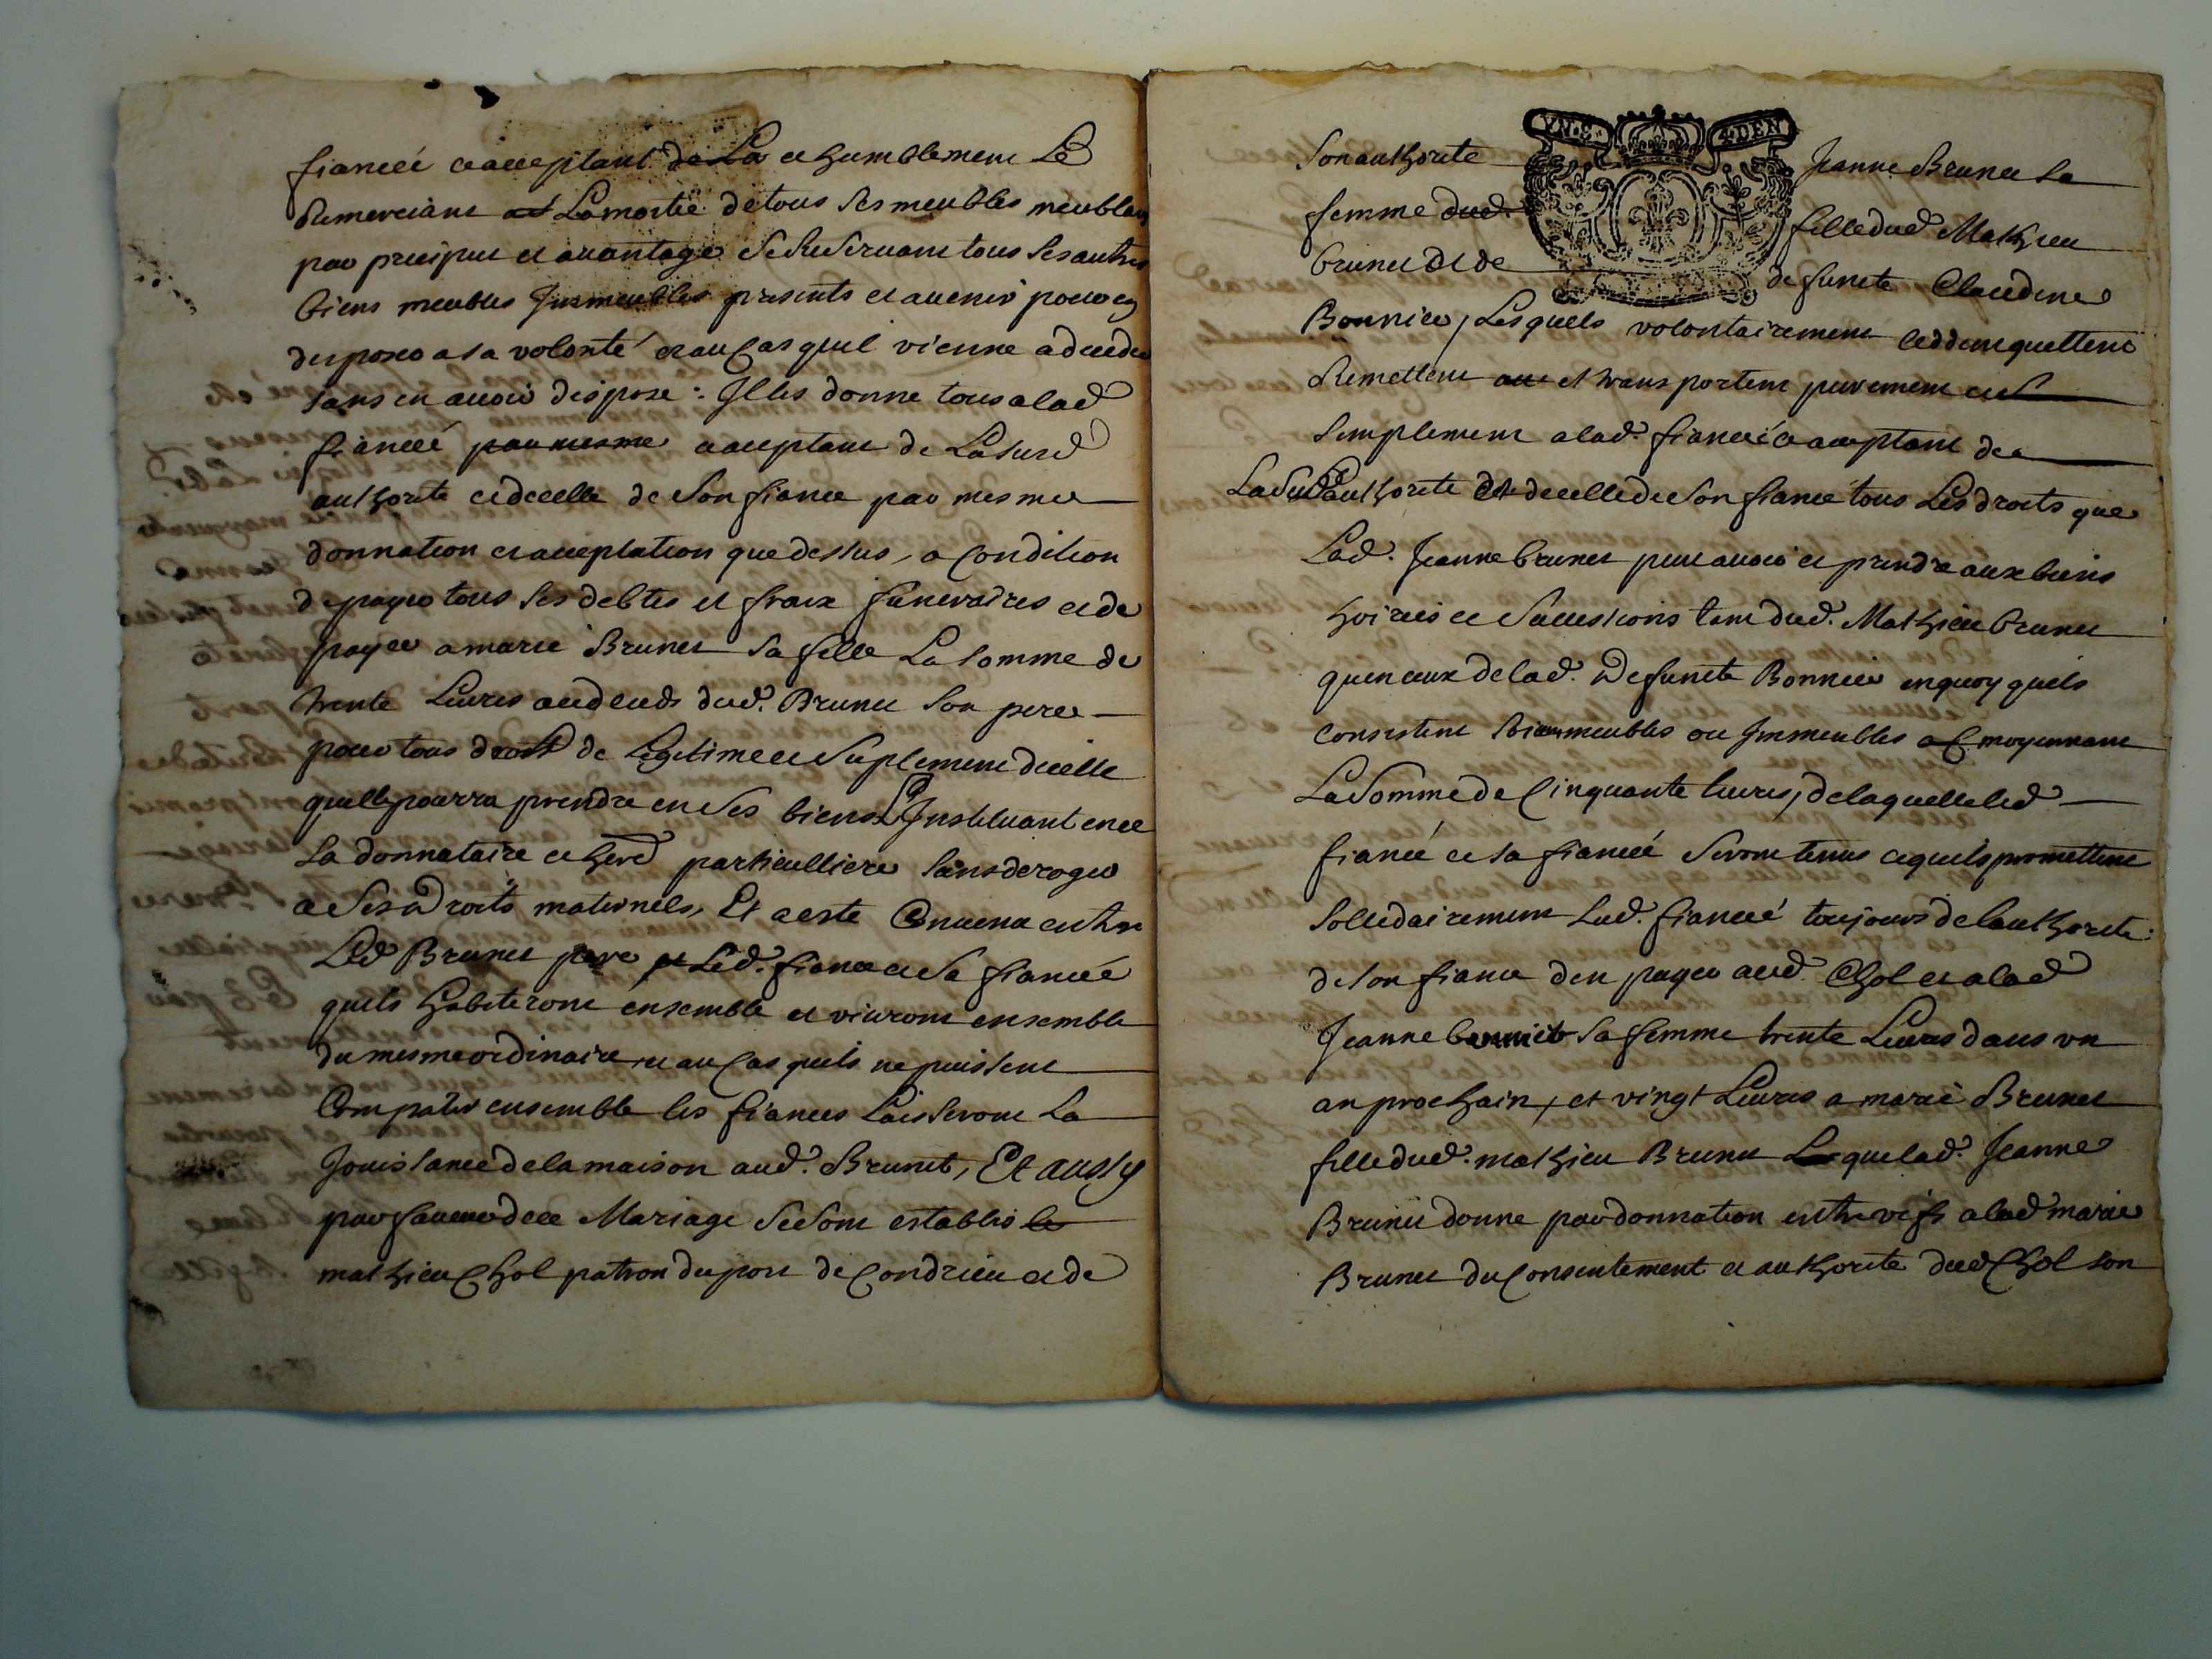 fianceé et acceptant de La et humblement Le
Remerciant et La moitie de tous ses meubles meublans
par precipu et auantage se Reseruant tous ses autres
biens meubles Immeubles presents et auenir pour en
disposer a sa volonté et au Cas quil vienne a deceder
sans en auoir dispose : Il les donne tous a lad
fianceé par mesme acceptant de La susd
authorite et de celle de son fiance par mesme
donnation et acceptation que dessus, a Condition
de payer tous ses debtes et fraix funeraires et de
payer a marie Brunet sa fille La somme de
trente Liures au deceds dud. Brunet son pere
pour tous droit de Legitime et suplement dicelle
quelle pourra prendre en ses biens L'Instituant en ce
sa donnataire et herd particulliere sans deroger
a ses droits maternels, Et a esté Conuenu entre
Led Brunet pere et Led. fiance et sa fianceé
quils habiteront ensemble et viuront ensemble
du mesme ordinaire, et au Cas quils ne puissent
Compatir ensemble les fiances Laisseront La
Jouissance de la maison aud. Brunet, Et aussy
par faueur de ce Mariage se sont establis le
mathieu Chol patron du port de Condrieu et de
YN.S. 4.DEN
son authorite Jeanne Brunet sa
femme dud. fille dud Mathieu
brunet et de defuncte Claudine
Bonnier, Lesquels volontairement cedden quettent
Remettent et transportent purement et
simplement a lad. fianceé acceptant de
La susd authorite et de celle de son fiance tous Les droits que
Lad. Jeanne brunet peut auoir et prendre aux biens
hoiries et successions tant dud. Mathieu brunet
quen ceux de lad. defuncte Bonnier en quoy quils
consistent soient meubles ou Immeubles et moyennant
La somme de Cinquante liures, de laquelle led
fiancé et sa fianceé seront tenus et quils promettent
sollidairement Lad. fianceé toujours de lauthorite
de son fiance den payer aud. Chol et a lad
Jeanne brunet sa femme trente Liures dans vn
an prochain, et vingt Liures a marie Brunet
fille dud. mathieu Brunet que lad. Jeanne
Brunet donne par donnation entre vifs a lad marie
Brunet du Consentement et authorite dud Chol son